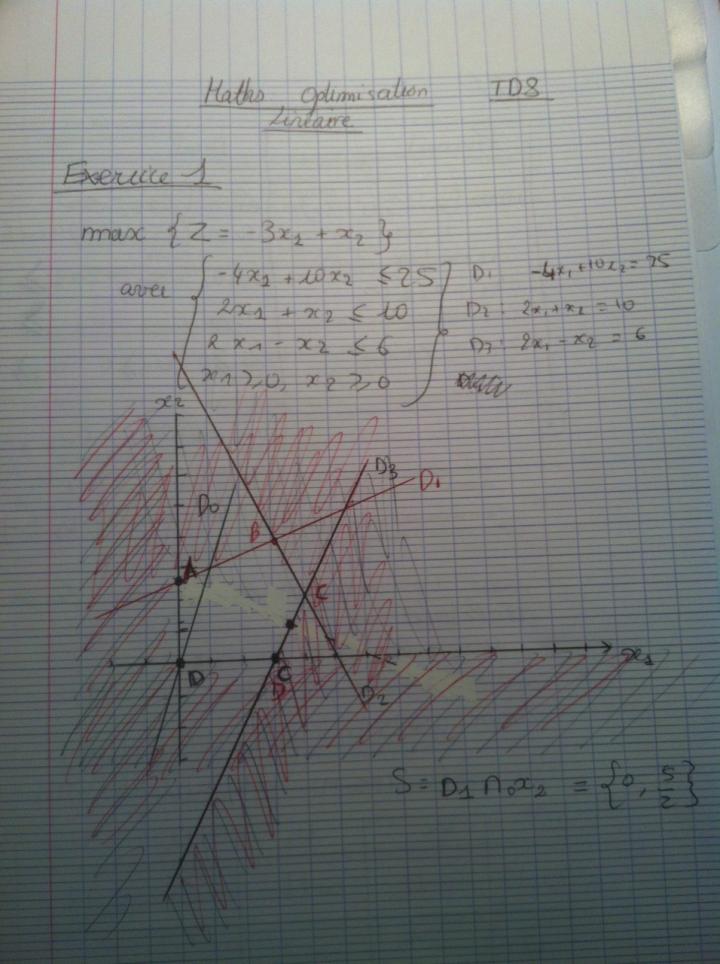 Maths Optimisation TD8
Linéaire
Exercice 1
max {Z = -3x₁ + x₂}
avec
-4x₁ + 10x₂ ≤ 25
2x₁ + x₂ ≤ 10
2x₁ - x₂ ≤ 6
x₁ ≥ 0, x₂ ≥ 0
D₁ -4x₁ + 10x₂ = 25
D₂ : 2x₁ + x₂ = 10
D₃ : 2x₁ - x₂ = 6
x₂
D₃
D₁
D₀
B
A
C
x₁
D
C
D
D₂
S = D₁ ∩ ox₂ = {0, 5/2}